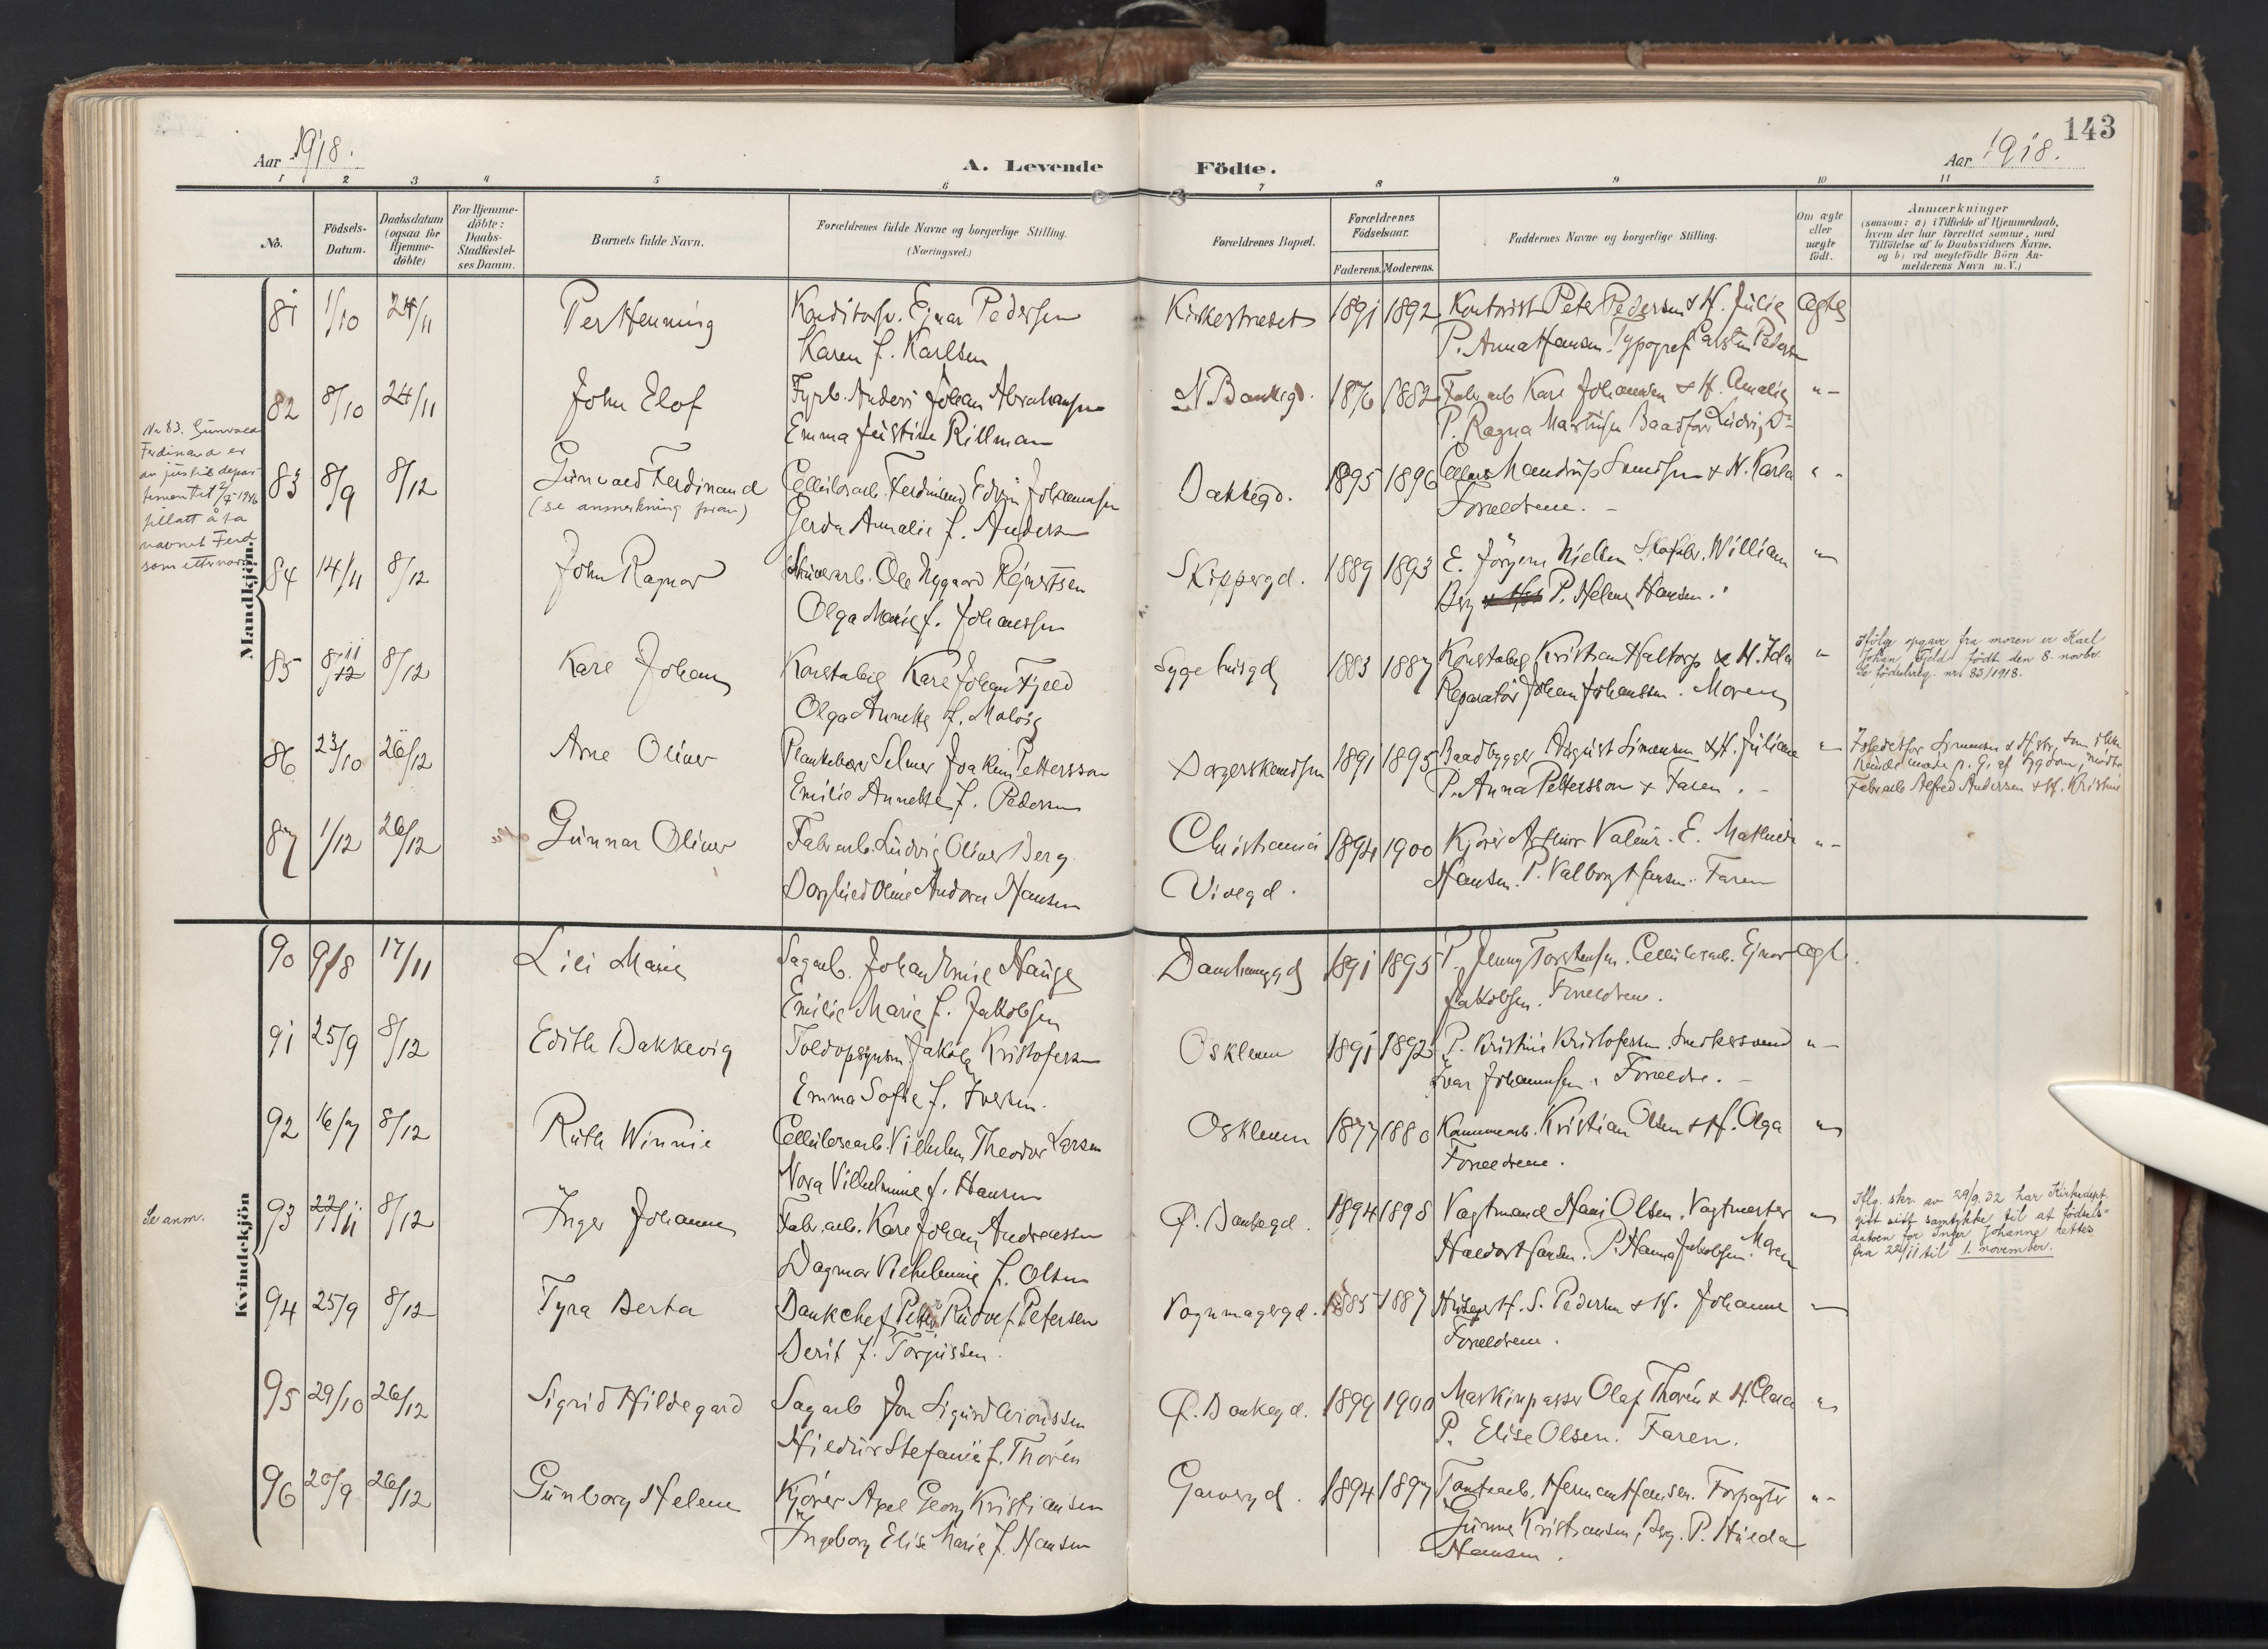 143
Aar 1918.
A. Levende Födte.
Aar 1918.
1 2 3 4 5 6 7 8 9 10 11
No.
Födsels-Datum.
Daabsdatum (ogsaa for Hjemme-döbte)
For Hjemme-döbte: Daabs-Stadfæstel-ses Datum.
Barnets fulde Navn.
Forældrenes fulde Navne og borgerlige Stilling. (Næringsvei.)
Forældrenes Bopæl.
Forældrenes Födselsaar.
Faderens. Moderens.
Faddernes Navne og borgerlige Stilling.
Om ægte eller uægte födt.
Anmærkninger
(saasom: a) i Tilfælde af Hjemmedaab,
hvem der har forrettet samme, med
Tilföielse af to Daabsvidners Navne.
og b) ved uægtefödte Börn An-
melderens Navn m. V.)
Mandkjön.
81 1/10 24/11 Per Henning Einar Pedersen Kirkestrædet 1891 1892 Kontorist Peter Pedersen & H. Julie ægte
Karen f. Karlsen P. Anna Hansen. Typograf Karsten Pedersen
82 8/10 24/11 John Elof Fyrb. Anders Johan Abrahamsen N. Bankegd. 1876 1882 Fabr. arb Karl Johansen & H. Amalie " -
Emma Justine Rillman P. Ragna Martinsen Baadfører Ludvig Do
No 83. Gunvald
Ferdinand er
av justisdepar-
tementet 1946
tillatt å ta
navnet Ferd
som etternavn
83 8/9 8/12 Gunvald Ferdinand Cellulosearb. Ferdinand Edvin Johannesen Bakkegd. 1895 1896 Mandrup Svendsen & H. Karla " -
(se anmerkning foran) Gerda Amalie f. Anders Forældrene. -
84 14/11 8/12 John Ragnar Ole Nygaard Rejertsen Skippergd. 1889 1893 E. Jörgen Nielsen. William "
Olga Marie f. Johanessen Berg P. Helene Hansen.
85 8/11 12 8/12 Karl Johan Konstabel Karl Johan Fjeld Sygehusgd 1883 1887 Konstabel Kristian Haltorp & H. Ida "
Olga Annette f. Reparatör Johan Johansen. Moren
Ifölge opgave fra moren er Karl
Johan Fjeld födt den 8. novbr.
Se födselsreg. nr. 83/1918.
86 23/10 26/12 Arne Oliver Plankebærer Selmer Joakim Pettersson 1891 1895 Baadbygger August Simonsen & H. Juliane "
Emilie Annette f. Pedersen P. Anna Pettersson & Faren. -
Istedetfor Simonsen & Hstr, som ikke
kunde møde p. g. af sygdom, mødte
Fabr arb Alfred Andersen & H. Kristine
87 1/12 26/12 Gunnar Oliver Fabr arb. Ludvig Oliver Berg Christiania 1894 1900 Kjörer Arthur Valeur. E. Mathilde " -
Borghild Oline Andora Hansen Vivegd. Hansen. P. Valborg Hansen. Faren
Kvindekjön
90 9/8 17/11 Lili Marie Sagarb. Johan Emil Hauge Damhauggd 1891 1895 P. Jenny Torstensen. Cellulosearb. Ejnar ægte.
Emilie Marie f. Jakobsen Jakobsen. Forældrene.
91 25/9 8/12 Edith Bakkevig Toldopsynsm Jakob Kristofersen Oskleven 1891 1892 P. Kristine Kristofersen. Snekkersvend " -
Emma Sofie f. Iversen. Ivar Johannesen. Forældre. -
92 16/7 8/12 Ruth Winnie Cellulosearb. Vilhelm Theodor Larsen Oskleven 1877 1880 Kristian Olsen & H. Olga "
Nora Vilhelmine f. Hansen Forældrene.
Se anm.
93 22/11 1/11 8/12 Inger Johanne Fabr. arb. Karl Johan Andreassen Ø. Bankegd. 1894 1898 Vagtmand Hans Olsen. Vagtmester "
Dagmar Vilhelmine f. Olsen Haldor Hansen. P. Hanna Jakobsen. Moren
Iflg. skr. av 29/9 32 har Kirkedept.
gitt sitt samtykke til at födsels-
datoen for Inger Johanne rettes
fra 22/11 til 1. november.
94 25/9 8/12 Tyra Berta Bankchef Petter Rudolf Petersen Vognmagergd. 1885 1887 H. S. Pedersen & H. Johanne "
Berit f. Torjussen. Forældrene.
95 29/10 26/12 Sigrid Hildegard Sagarb Jon Sigurd Aronssen Ø. Bankegd. 1899 1900 Maskinpasser Olaf Thorén & H. Clara "
Hildur Stefanie f. Thorén P. Elise Olsen. Faren.
96 20/9 26/12 Gunborg Helene Kjörer Axel Georg Kristiansen Garverigd. 1894 1897 Tomtearb. Herman Hansen. Forpagter " -
Ingeborg Elise Marie f. Hansen Gunnar Kristiansen, Berg. P. Hulda
Hansen.